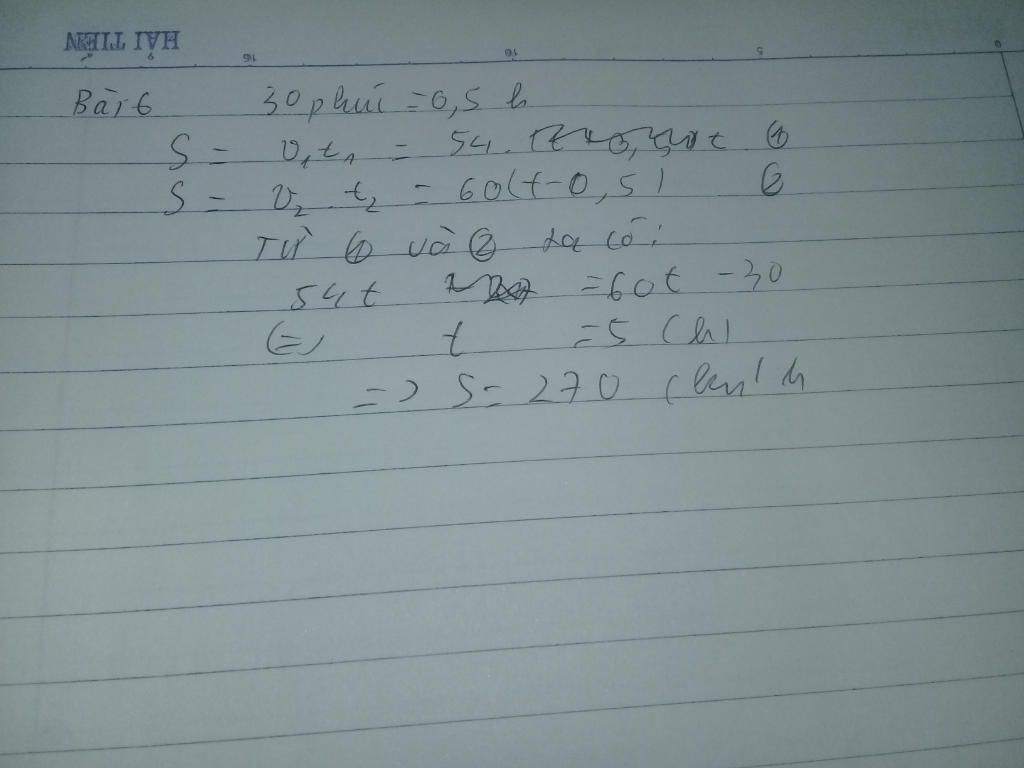 HẢI TIẾN
5 10 15
Bài 6 30 phút = 0,5 h
S = v₁t₁ = 54. t ①
S = v₂ t₂ = 60(t-0,5) ②
Từ ① và ② ta có:
54t = 60t - 30
(=) t = 5 (h)
=> S = 270 (km/h